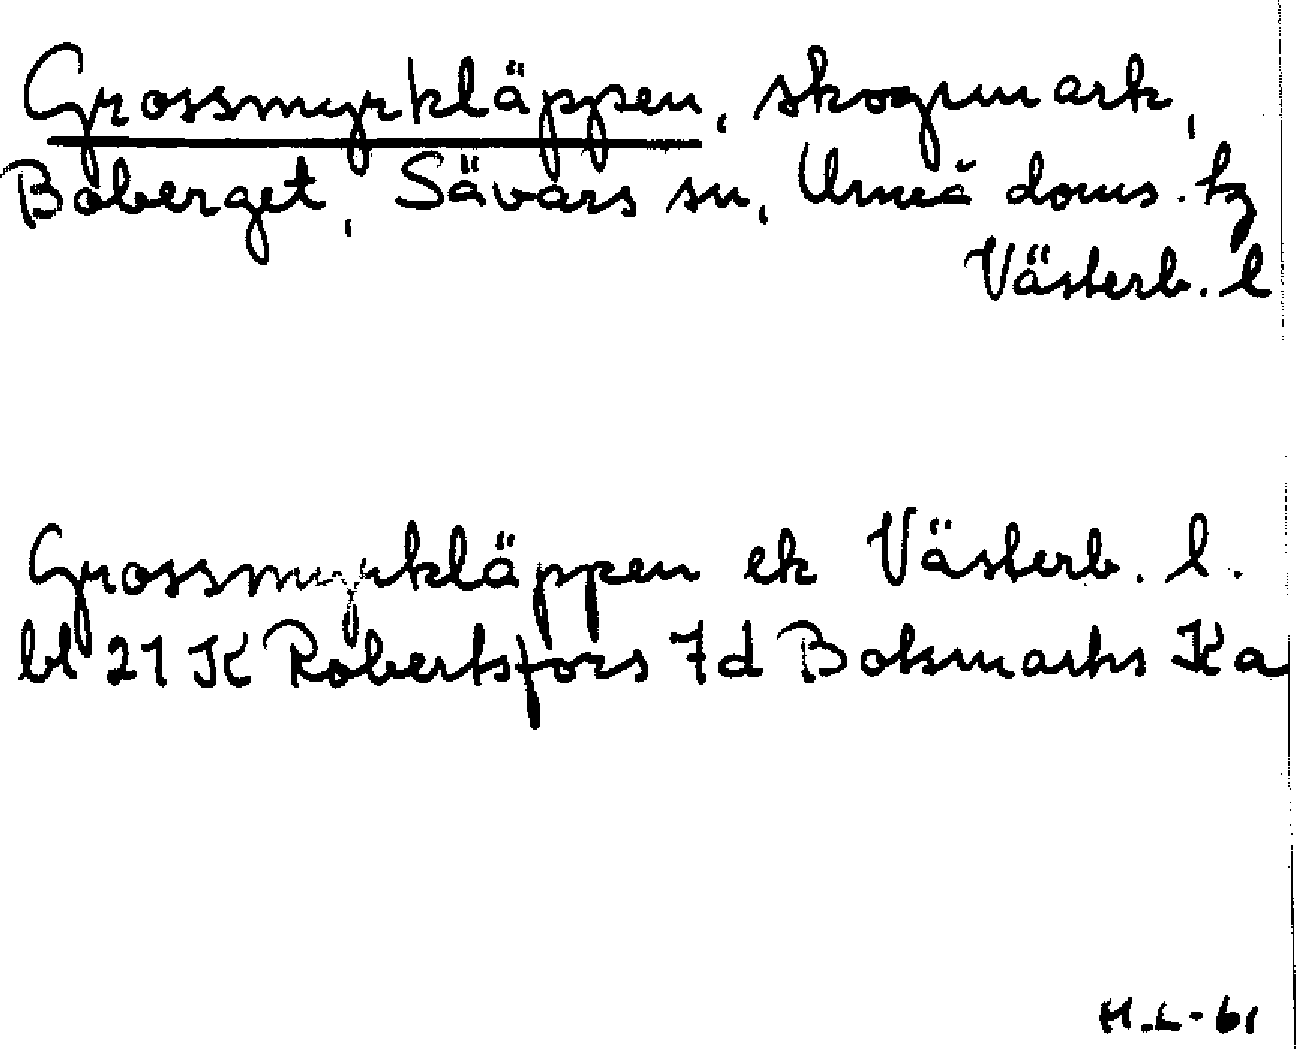 Grossmyrkläppen, skogsmark,
Boberget, Sävars sn, Umeå doms. tg
Västerb. l
Grossmyrkläppen ek Västerb. l.
bl 21 K Robertsfors 7d Botsmarks Ka
H.L-61